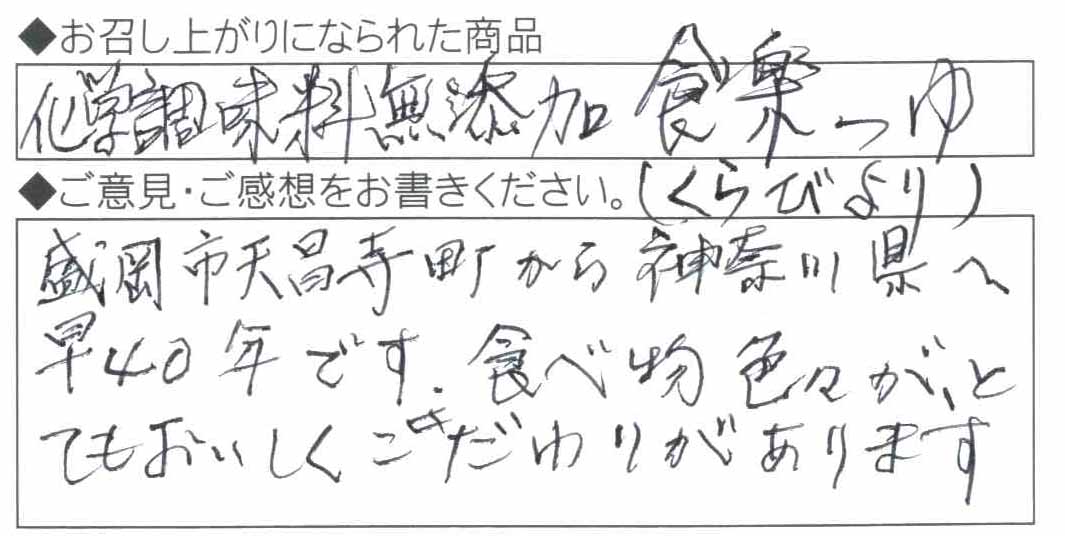 ◆お召し上がりになられた商品
化学調味料無添加 食楽つゆ
◆ご意見・ご感想をお書きください。(くらびより)
盛岡市天昌寺町から神奈川県へ
早40年です.食べ物色々が、と
てもおいしくこだわりがあります